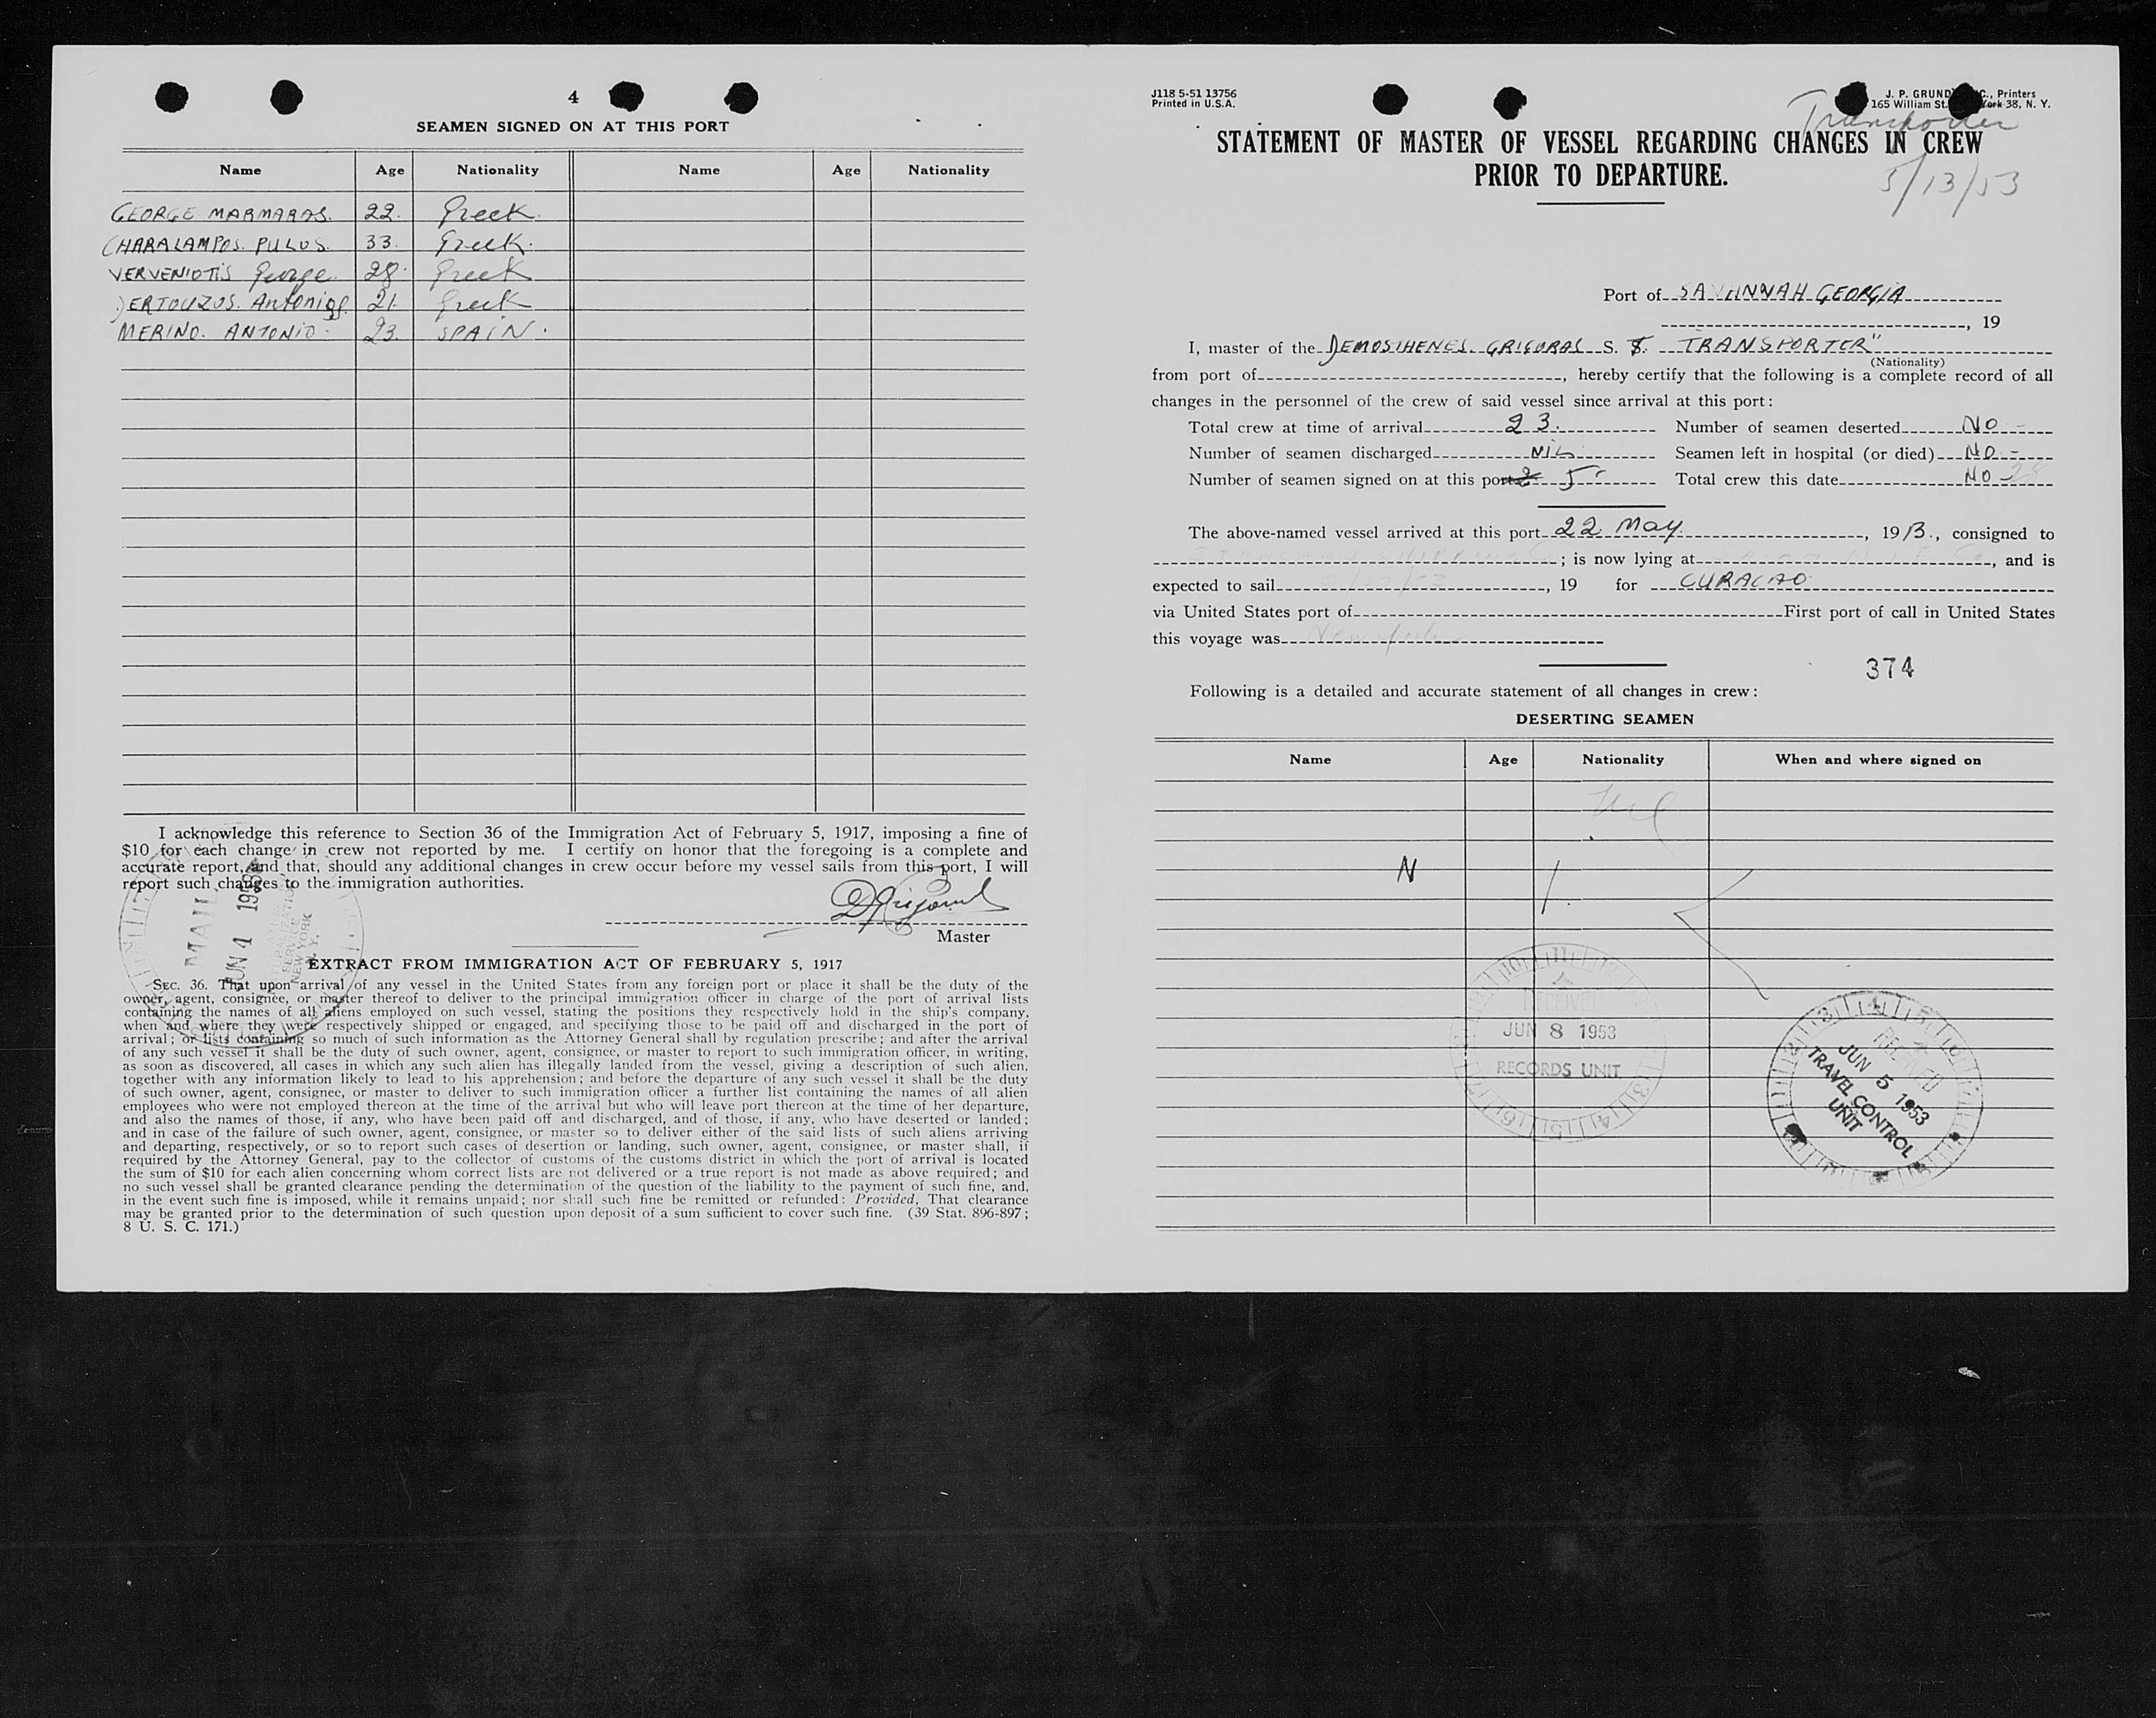 4
SEAMEN SIGNED ON AT THIS PORT
Name Age Nationality Name Age Nationality
GEORGE MARMARAS. 22. Greek.
CHARALAMPOS. PULOS. 33. Greek.
VERVENIOTIS George. 28. Greek
DERTOUZOS. Antonios. 21. Greek
MERINO. ANTONIO. 23. SPAIN.
I acknowledge this reference to Section 36 of the Immigration Act of February 5, 1917, imposing a fine of
$10 for each change in crew not reported by me. I certify on honor that the foregoing is a complete and
accurate report, and that, should any additional changes in crew occur before my vessel sails from this port, I will
report such changes to the immigration authorities.
Master
MAIL
JUN 4 1953
SERVICE
NEW YORK
N. Y.
EXTRACT FROM IMMIGRATION ACT OF FEBRUARY 5, 1917
SEC. 36. That upon arrival of any vessel in the United States from any foreign port or place it shall be the duty of the
owner, agent, consignee, or master thereof to deliver to the principal immigration officer in charge of the port of arrival lists
containing the names of all aliens employed on such vessel, stating the positions they respectively hold in the ship's company,
when and where they were respectively shipped or engaged, and specifying those to be paid off and discharged in the port of
arrival; or lists containing so much of such information as the Attorney General shall by regulation prescribe; and after the arrival
of any such vessel it shall be the duty of such owner, agent, consignee, or master to report to such immigration officer, in writing,
as soon as discovered, all cases in which any such alien has illegally landed from the vessel, giving a description of such alien,
together with any information likely to lead to his apprehension; and before the departure of any such vessel it shall be the duty
of such owner, agent, consignee, or master to deliver to such immigration officer a further list containing the names of all alien
employees who were not employed thereon at the time of the arrival but who will leave port thereon at the time of her departure,
and also the names of those, if any, who have been paid off and discharged, and of those, if any, who have deserted or landed;
and in case of the failure of such owner, agent, consignee, or master so to deliver either of the said lists of such aliens arriving
and departing, respectively, or so to report such cases of desertion or landing, such owner, agent, consignee, or master shall, if
required by the Attorney General, pay to the collector of customs of the customs district in which the port of arrival is located
the sum of $10 for each alien concerning whom correct lists are not delivered or a true report is not made as above required; and
no such vessel shall be granted clearance pending the determination of the question of the liability to the payment of such fine, and,
in the event such fine is imposed, while it remains unpaid; nor shall such fine be remitted or refunded: Provided, That clearance
may be granted prior to the determination of such question upon deposit of a sum sufficient to cover such fine. (39 Stat. 896-897;
8 U. S. C. 171.)
J118 5-51 13756
Printed in U.S.A.
J. P. GRUND , Printers
165 William St. York 38, N. Y.
Transporter
STATEMENT OF MASTER OF VESSEL REGARDING CHANGES IN CREW
PRIOR TO DEPARTURE.
5/13/53
Port of SAVANNAH GEORGIA
, 19
I, master of the DEMOSTHENES. GRIGORAS S. S. TRANSPORTER"
(Nationality)
from port of , hereby certify that the following is a complete record of all
changes in the personnel of the crew of said vessel since arrival at this port:
Total crew at time of arrival 23. Number of seamen deserted NO -
Number of seamen discharged NIL Seamen left in hospital (or died) NO -
Number of seamen signed on at this port 2 5 Total crew this date NO 28
The above-named vessel arrived at this port 22 May. , 1953., consigned to
; is now lying at , and is
expected to sail , 19 for CURACAO
via United States port of First port of call in United States
this voyage was New York
374
Following is a detailed and accurate statement of all changes in crew:
DESERTING SEAMEN
Name Age Nationality When and where signed on
Nil
N I. L
RECEIVED
JUN 8 1953
RECORDS UNIT
RECEIVED
JUN 5 1953
TRAVEL CONTROL
UNIT